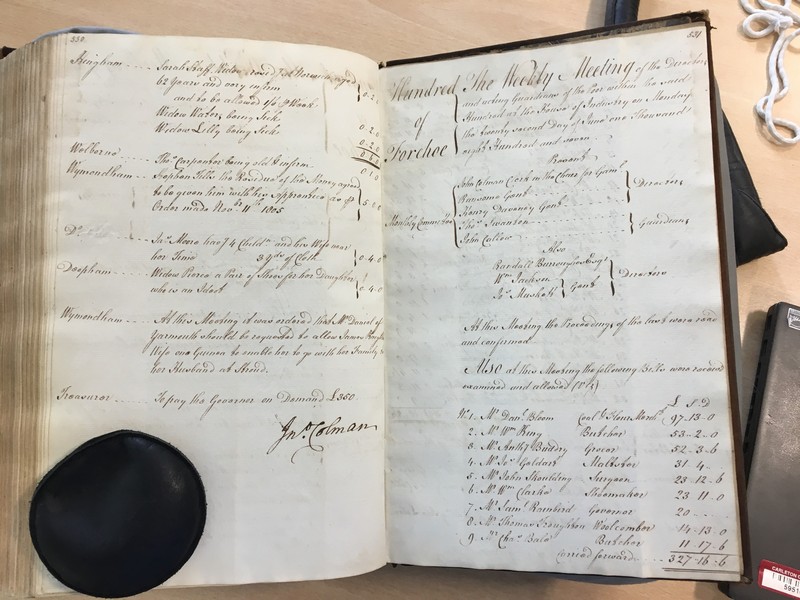 550
Hingham Sarah Staff Widow aged
62 Years and very infirm
and to be allowed p Week
Widow Waters being Sick
Widow Lilly being Sick 0.2.0
0.2.0
Welborne Thos Carpenter being old & infirm 0.1.0
Wymondham Stephen Tills the Residue of the Money agreed
to be given him with his Apprentice as p
Order made Novr 11th 1805
Do Jno Moore having 4 Childn and his Wife near
her Time 3 yds of Cloth 0.4.0
Deopham Widow Pearce a Pair of Shoes for her Daughter
who is an Ideot 0.4.0
Wymondham At this Meeting it was ordered that Mr Daniel of
Yarmouth should be requested to allow James
Wife one Guinea to enable her to go with her Family to
her Husband at Stroud.
Treasurer To pay the Governor on Demand £350
Jno Colman
551
Hundred of Forehoe
The Weekly Meeting of the Directors
and acting Guardians of the Poor within the said
Hundred at the House of Industry on Monday
the twenty second day of June one Thousand
eight Hundred and seven
Present
Monthly Committee
John Colman Clerk in the Chair for Gent
Ransome Gent
Henry Daveney Gent
Directors
Thos Swanton
John Callow
Guardians
Also
Randall Burroughes Esqr
Wm Jackson
Jos Muskett
Gent
Directors
At this Meeting the Proceedings of the last were read
and confirmed
Also at this Meeting the following Bills were received
examined and allowed (Viz)
£ S D
No 1. Mr Danl Bloom Coal & Flour Mercht 97-13-0
2. Mr Wm King Butcher 53-2-0
3. Mr Anthy Buddry Grocer 52-3-6
4. Mr Jos Goldart Maltster 31 4 -
5. Mr John Shoulding Surgeon 23-12-6
6. Mr Wm Clarke Shoemaker 23 11 0
7. Mr Saml Rainbird Governor 20
8. Mr Thomas Troughton Woolcomber 14-13-0
9. Mr Chas Bale Butcher 11-17-6
carried forward 327-16-6
CARLETON